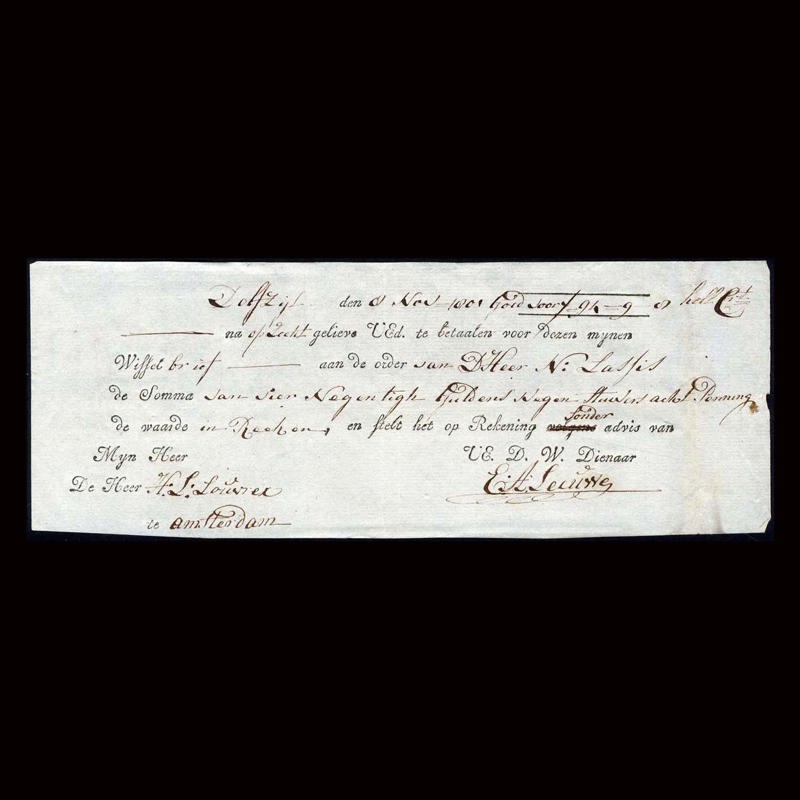 Delfzijl den 8 Nov 1801 Goed voor ƒ 94–9–8 holl Crt
na op Zicht gelieve UEd. te betaalen voor dezen mynen
Wissel br aan de order van D'Heer N: Lassis
de Somma van vier Negentigh Guldens Negen Stuivers acht Penning
de waarde in Reeken, en stelt het op Rekening volgens Sonder advis van
Myn Heer UE. D. W. Dienaar
De Heer H. L: Louvrex E: A Leeuwe
te amsterdam